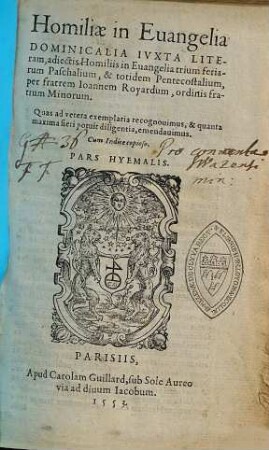 Homiliæ in Euangelia
DOMINICALIA IVXTA LITE-
ram, adiectis Homiliis in Euangelia trium feria-
rum Paschalium, & totidem Pentecostalium,
per fratrem Ioannem Royardum, ordinis fra-
trum Minorum.
Quas ad vetera exemplaria recognouimus, & quanta
maxima fieri potuit diligentia, emendauimus.
Cum Indice copioso.
PARS HYEMALIS.
Pro conuentu
min:
PARISIIS,
Apud Carolam Guillard, sub Sole Aureo
via ad diuum Iacobum.